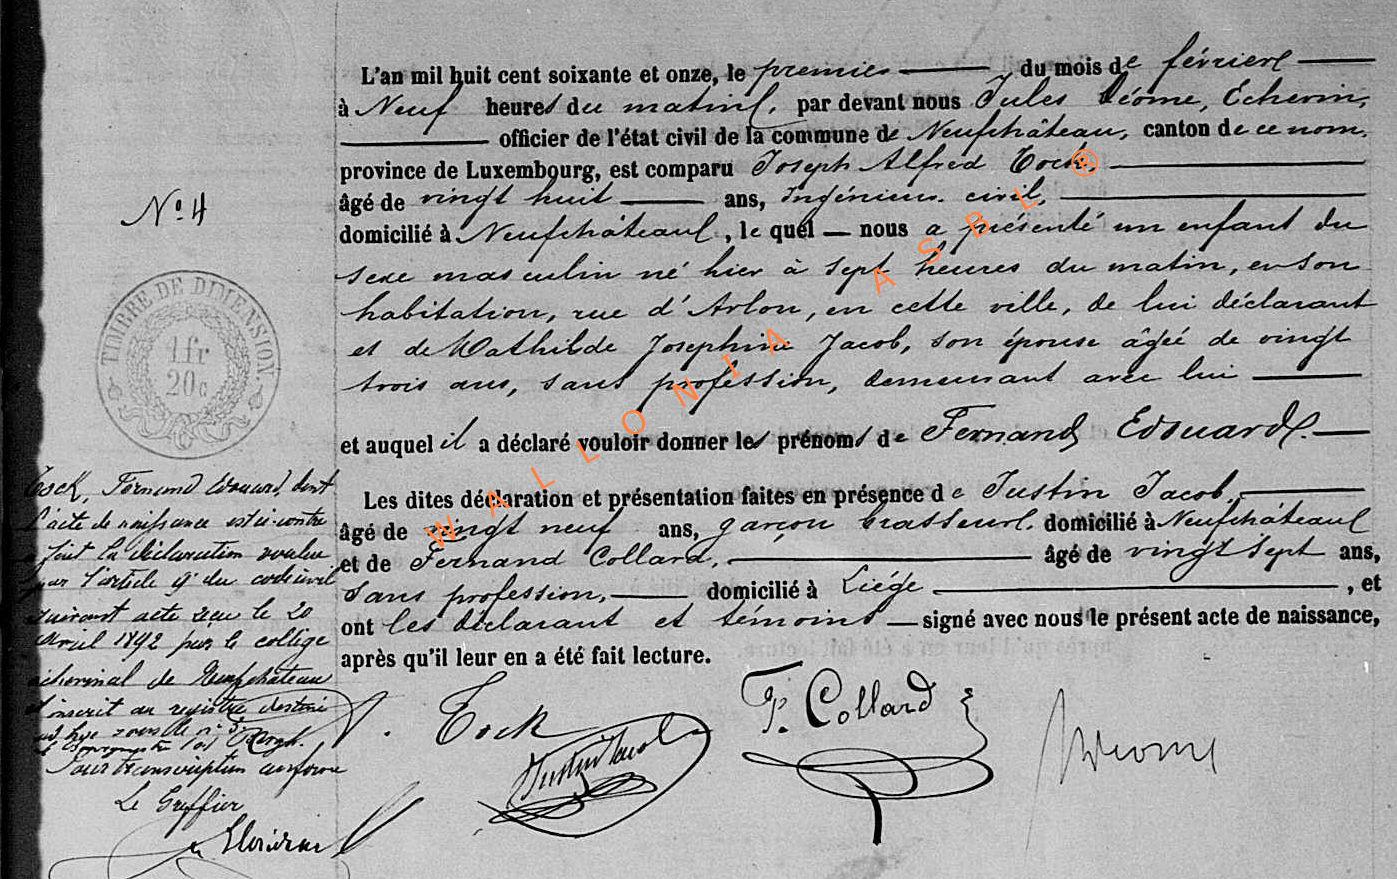 L'an mil huit cent soixante et onze, le premier du mois de février
à Neuf heures du matin, par devant nous Jules Déome, Echevin,
officier de l'état civil de la commune de Neufchâteau, canton de ce nom,
province de Luxembourg, est comparu Joseph Alfred Tock,
âgé de vingt huit ans, Ingénieur civil,
domicilié à Neufchâteau, le quel nous a présenté un enfant du
sexe masculin né hier à sept heures du matin, en son
habitation, rue d'Arlon, en cette ville, de lui déclarant
et de Mathilde Josephine Jacob, son épouse âgée de vingt
trois ans, sans profession, demeurant avec lui
et auquel il a déclaré vouloir donner les prénoms de Fernand Edouard.
Les dites déclaration et présentation faites en présence de Justin Jacob,
âgé de vingt neuf ans, garçon brasseur, domicilié à Neufchâteau
et de Fernand Collard, âgé de vingt sept ans,
sans profession, domicilié à Liége, et
ont les déclarant et témoins signé avec nous le présent acte de naissance,
après qu'il leur en a été fait lecture.
Tock
Justin Jacob
F. Collard
Déome
N° 4
TIMBRE DE DIMENSION.
1 fr
20 c
Tock, Fernand Edouard, dont
l'acte de naissance est ci-contre
a fait la déclaration voulue
par l'article 9 du code civil
suivant acte reçu le 20
avril 1892 par le collège
échevinal de Neufchâteau
et inscrit au registre destiné
Pour transcription conforme
Le Greffier
WALLONIA ASBL ®